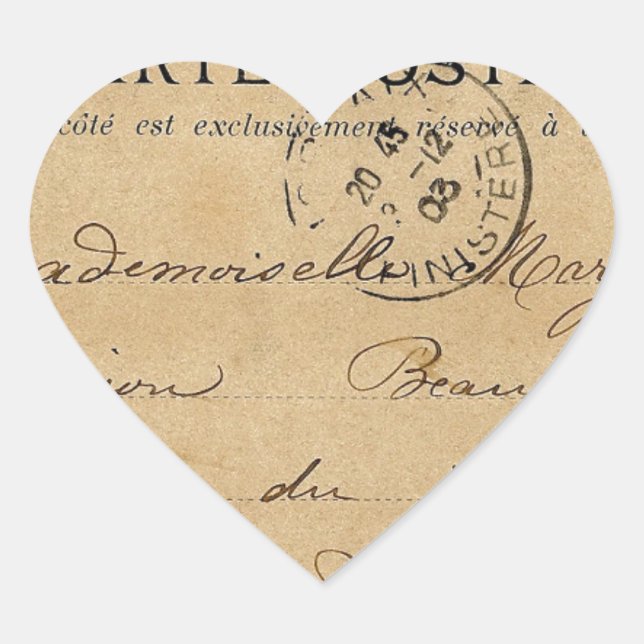 RTE OSTA
côté est exclusivement réservé à
20 45
-12
03
FINISTER
ademoiselle Mar
ion Beau
du